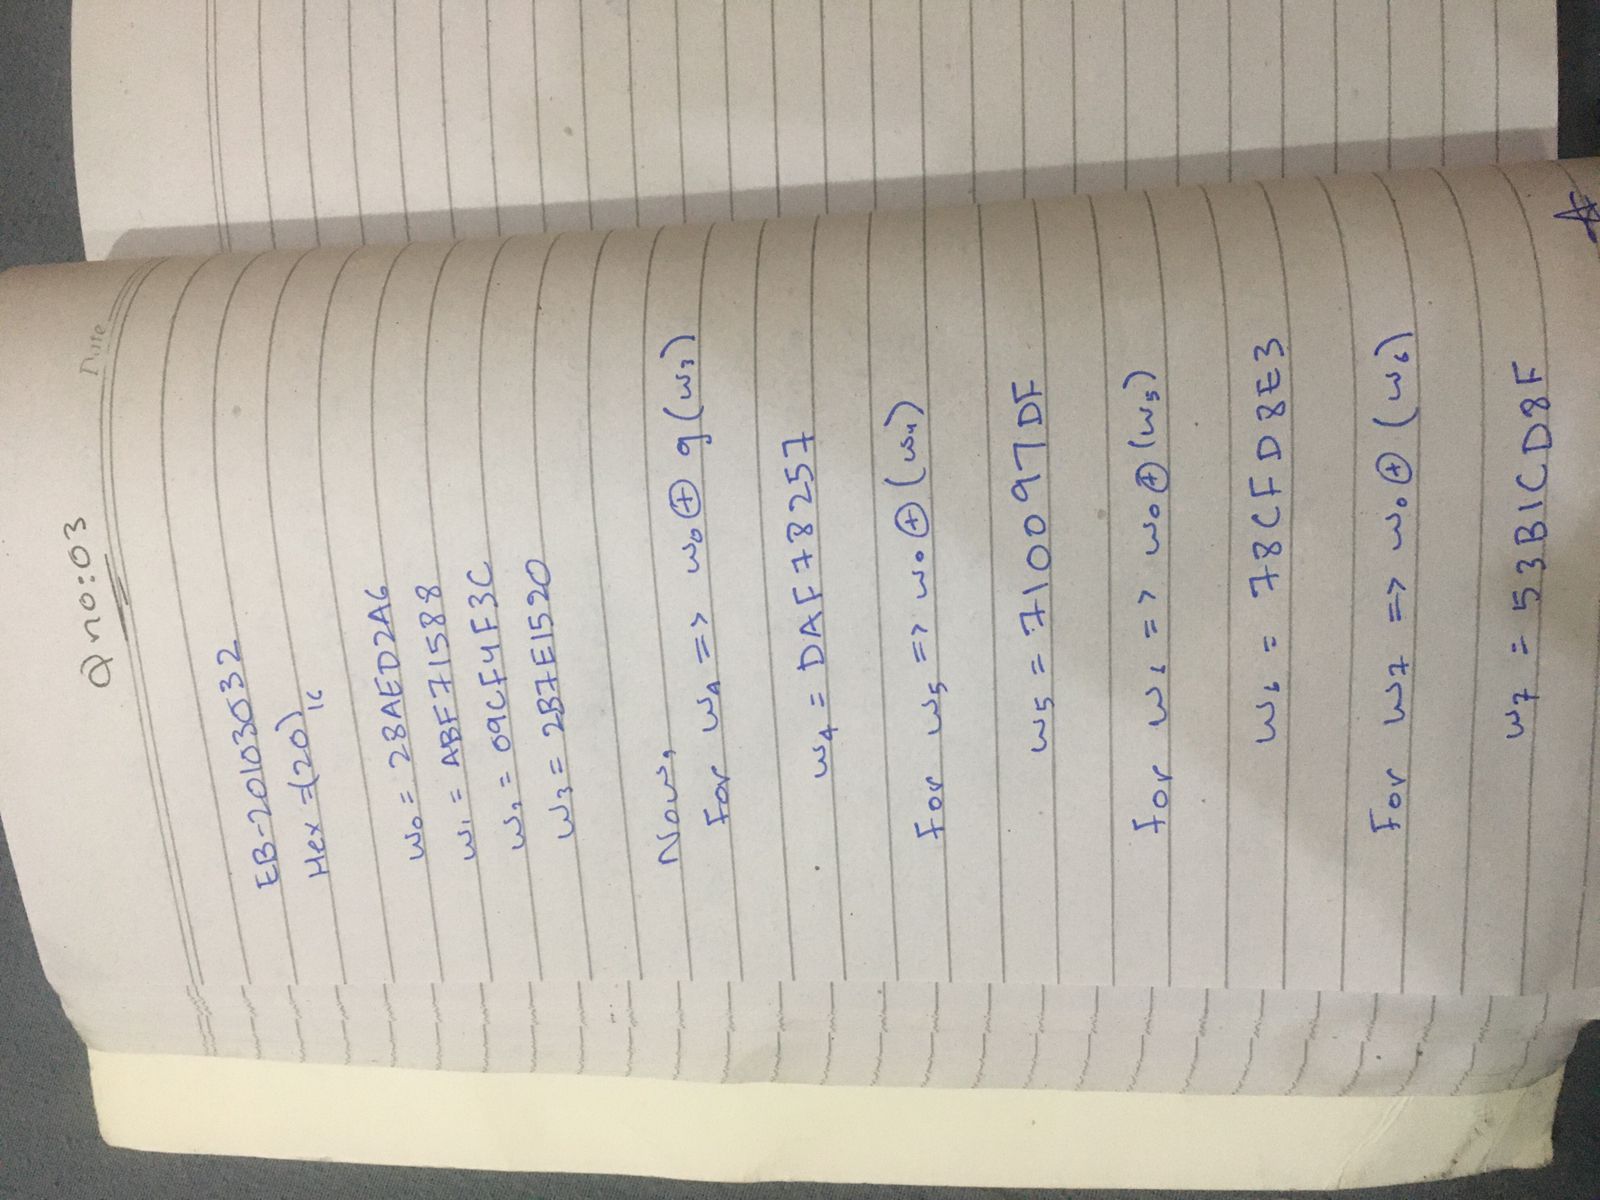 Q no:03
Date
EB-20103032
Hex =(20)16
w0 = 28AED2A6
w1 = ABF71588
w2 = 09CF4F3C
w3 = 2B7E1520
Now,
For w4 => w0 ⊕ g(w3)
w4 = DAF78257
For w5 => w0 ⊕ (w4)
w5 = 710097DF
for w6 => w0 ⊕ (w5)
w6 = 78CFD8E3
For w7 => w0 ⊕ (w6)
w7 = 53B1CD8F